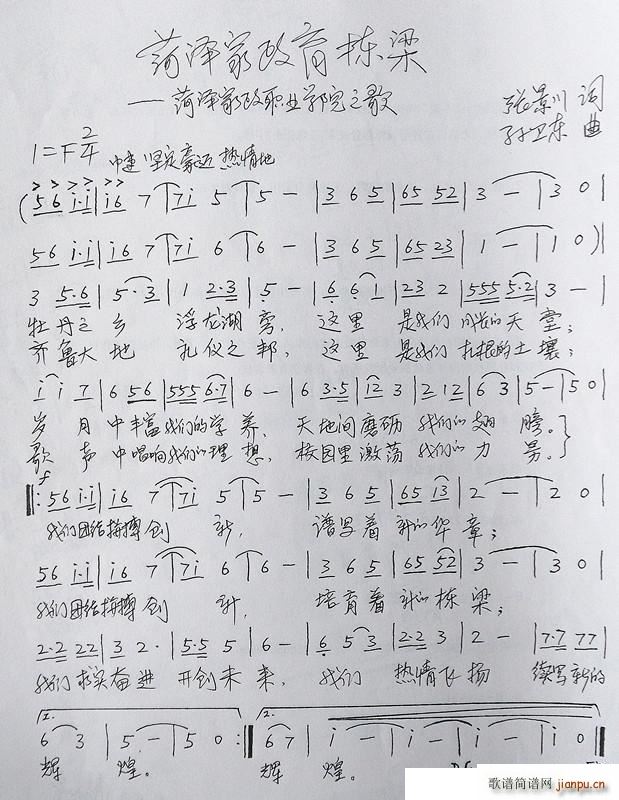 菏泽家政育栋梁
——菏泽家政职业学院之歌
张景川 词
孙卫东 曲
1=F 2/4 中速 坚定豪迈 热情地
(5 6 i·i | i6 7 | 7i 5 | 5 – | 3 6 5 | 65 52 | 3 – | 3 0 |
56 i·i | i6 7 | 7i 6 | 6 – | 3 6 5 | 65 23 | 1 – | 1 0 )|
3 5·6 | 5·3 | 1 2·3 | 5 – | 6 6 1 | 23 2 | 555 5·2 | 3 – |
牡丹之乡 浮龙湖旁, 这里 是我们 成长的天堂;
齐鲁大地 礼仪之邦, 这里 是我们 扎根的土壤;
i i 7 | 6 56 | 555 6·7 | 6 – | 6 3·5 | 12 3 | 2 12 | 6 3 | 5 – | 5 0 |
岁月中丰富我们的学养, 天地间磨砺 我们的翅膀。
歌声中唱响我们的理想, 校园里激荡 我们的力量。
f
56 i·i | i6 7 | 7i 5 | 5 – | 3 6 5 | 65 13 | 2 – | 2 0 |
我们团结拼搏创新, 谱写着 新的华章;
56 i·i | i6 7 | 7i 6 | 6 – | 3 6 5 | 65 52 | 3 – | 3 0 |
我们团结拼搏创新, 培育着 新的栋梁;
2·2 22 | 3 2· | 5·5 5 | 6 – | 6 5 3 | 2·2 3 | 2 – | 7·7 77 |
我们求实奋进 开创未来, 我们 热情飞扬 续写新的
6 3 | 5 – | 5 0 :‖ 2. 6 7 | i – | i – | i – | i 0 ‖
辉煌。 辉煌。
歌谱简谱网
jianpu.cn